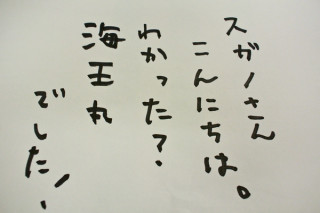 スガノさん
こんにちは。
わかった？
海王丸
でした！